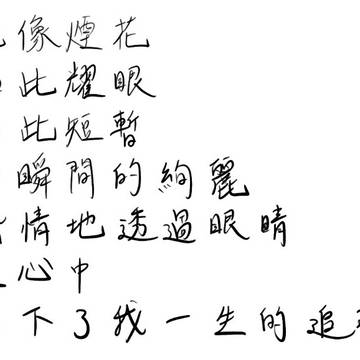 像煙花
此耀眼
此短暫
瞬間的絢麗
情地透過眼睛
心中
下了我一生的追